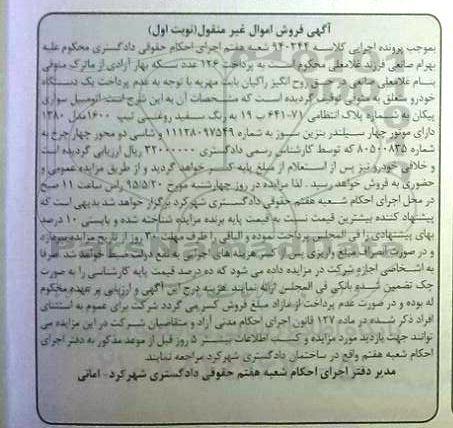 آگهی فروش اموال غیر منقول(نوبت اول)
بموجب پرونده اجرایی کلاسه ۹۴۰۲۴۴ شعبه هفتم اجرای احکام حقوقی دادگستری محکوم علیه
بهرام صانعی فرزند غلامعلی محکوم است به پرداخت ۱۲۶ عدد سکه بهار آزادی از ماترک متوفی
بنام غلامعلی صانعی در حق روح انگیز راکیان بابت مهریه با توجه به عدم پرداخت یک دستگاه
خودرو متعلق به متوفی توقیف گردیده است که مشخصات آن به این شرح است اتومبیل سواری
پیکان به شماره پلاک انتظامی ۷۱-۶۴۱ ب ۱۹ به رنگ سفید روغنی تیپ ۱۶۰۰مدل ۱۳۸۰
دارای موتور چهار سیلندر بنزین سوز به شماره ۱۱۱۲۸۰۹۷۵۴۹ و شاسی دو محور چهار چرخ به
شماره ۸۰۵۰۰۸۳۵ که توسط کارشناس رسمی دادگستری ۳۲۰۰۰۰۰۰ ریال ارزیابی گردیده است
و خلافی خودرو نیز پس از استعلام از مبلغ پایه کسر خواهد گردید و از طریق مزایده عمومی و
حضوری به فروش خواهد رسید. لذا مزایده در روز چهارشنبه مورخ ۹۵/۵/۲۰ راس ساعت ۱۱ صبح
در محل اجرای احکام شعبه هفتم حقوقی دادگستری شهرکرد برگزار خواهد شد بدیهی است که
پیشنهاد کننده بیشترین قیمت نسبت به قیمت پایه برنده مزایده شناخته شده و بایستی ۱۰ درصد
بهای پیشنهادی را فی المجلس پرداخت نموده و الباقی را ظرف مهلت ۳۰ روز از تاریخ مزایده بپردازد
و در صورت انصراف مبلغ واریزی پس از کسر هزینه های اجرایی به نفع دولت ضبط خواهد شد. صرفا
به اشخاصی اجازه شرکت در مزایده داده می شود که ده درصد قیمت پایه کارشناسی را به صورت
چک تضمین شده بانکی فی المجلس ارائه نمایند هزینه درج این آگهی و ارزیابی بر عهده محکوم
له بوده و در صورت عدم پرداخت از مازاد مبلغ فروش کسر می گردد شرکت برای عموم به استثنای
افراد ذکر شده در ماده ۱۲۷ قانون اجرای احکام مدنی آزاد و متقاضیان شرکت در این مزایده می
توانند جهت بازدید مورد مزایده و کسب اطلاعات بیشتر ۵ روز قبل از موعد مذکور به دفتر اجرای
احکام شعبه هفتم واقع در ساختمان دادگستری شهرکرد مراجعه نمایند.
مدیر دفتر اجرای احکام شعبه هفتم حقوقی دادگستری شهرکرد- امانی